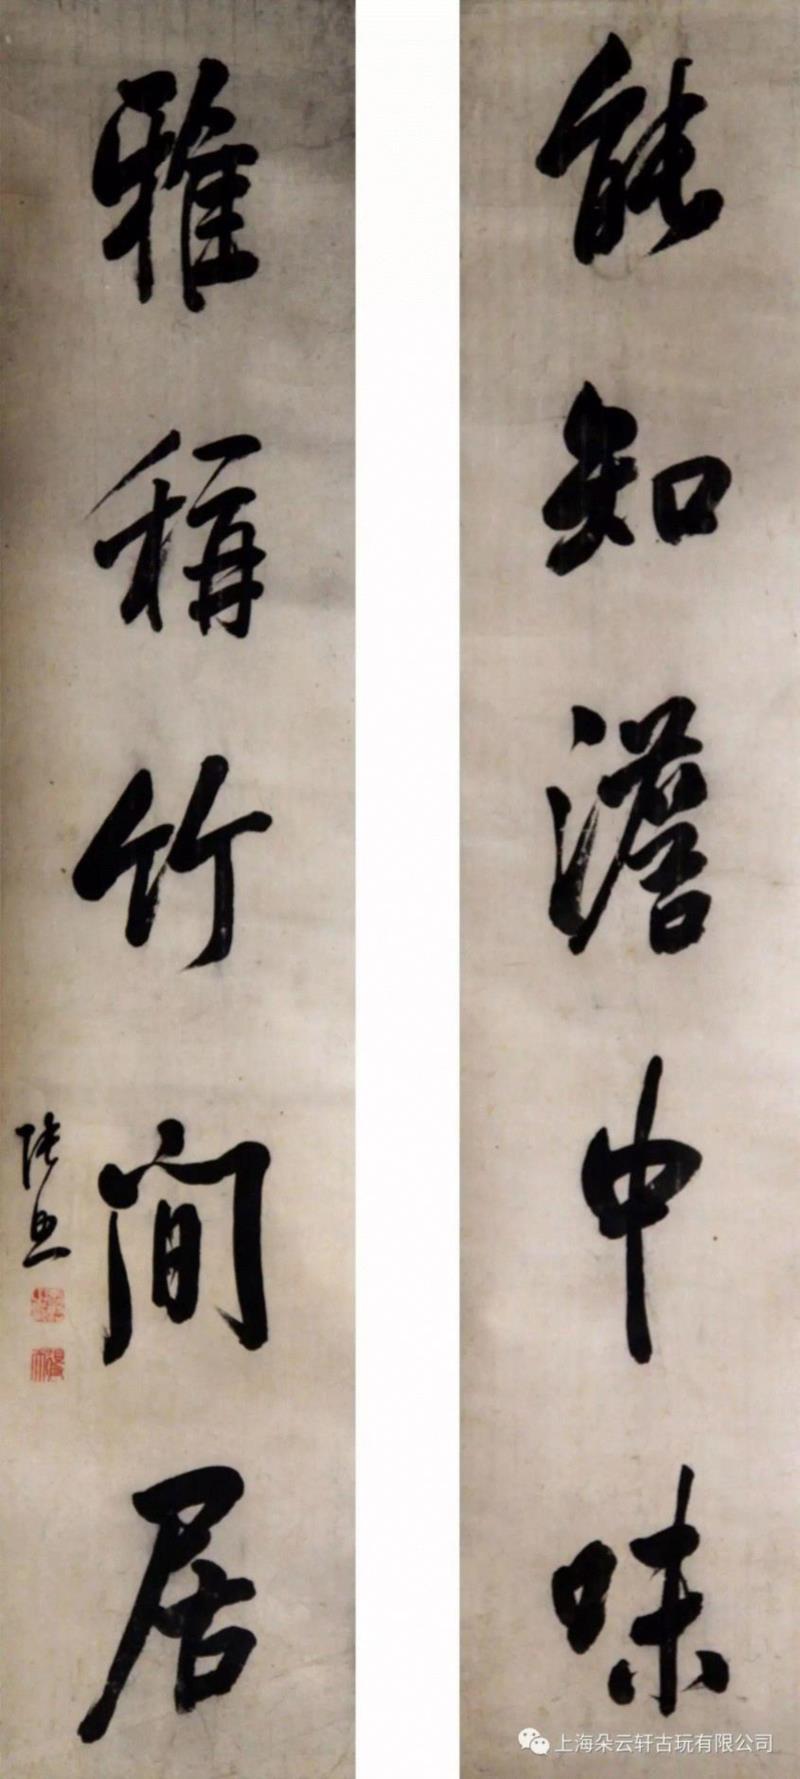 能知澹中味
雅称竹间居
张照
上海朵云轩古玩有限公司